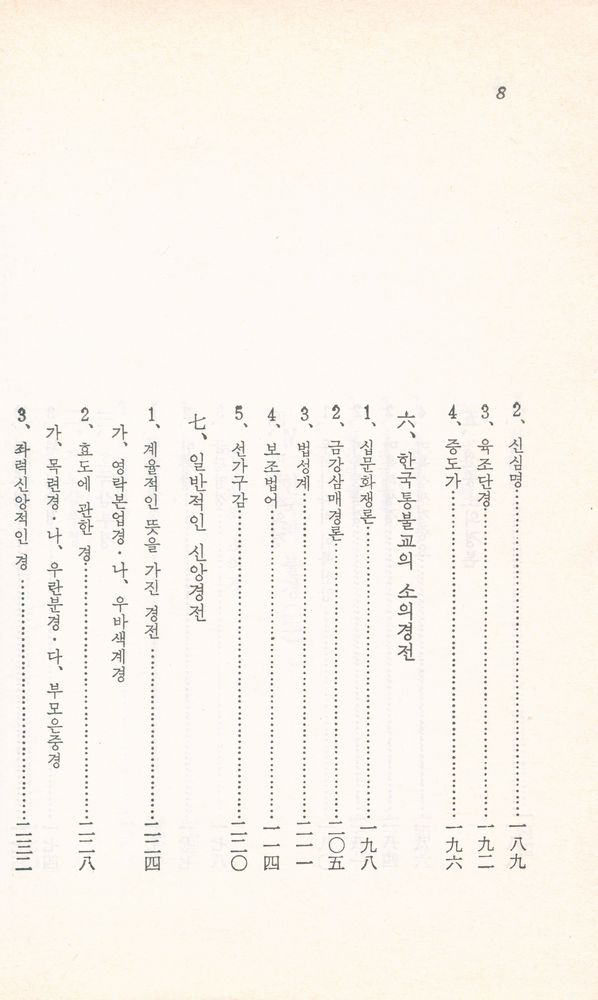 8
2、신심명……………一八九
3、육조단경……………一九二
4、증도가……………一九六
六、한국통불교의 소의경전
1、십문화쟁론……………一九八
2、금강삼매경론……………二〇五
3、법성계……………二一一
4、보조법어……………一一四
5、선가구감……………二二〇
七、일반적인 신앙경전
1、계율적인 뜻을 가진 경전……………二二四
가、영락본업경·나、우바색계경
2、효도에 관한 경……………二二八
가、목련경·나、우란분경·다、부모은중경
3、좌력신앙적인 경……………二三二